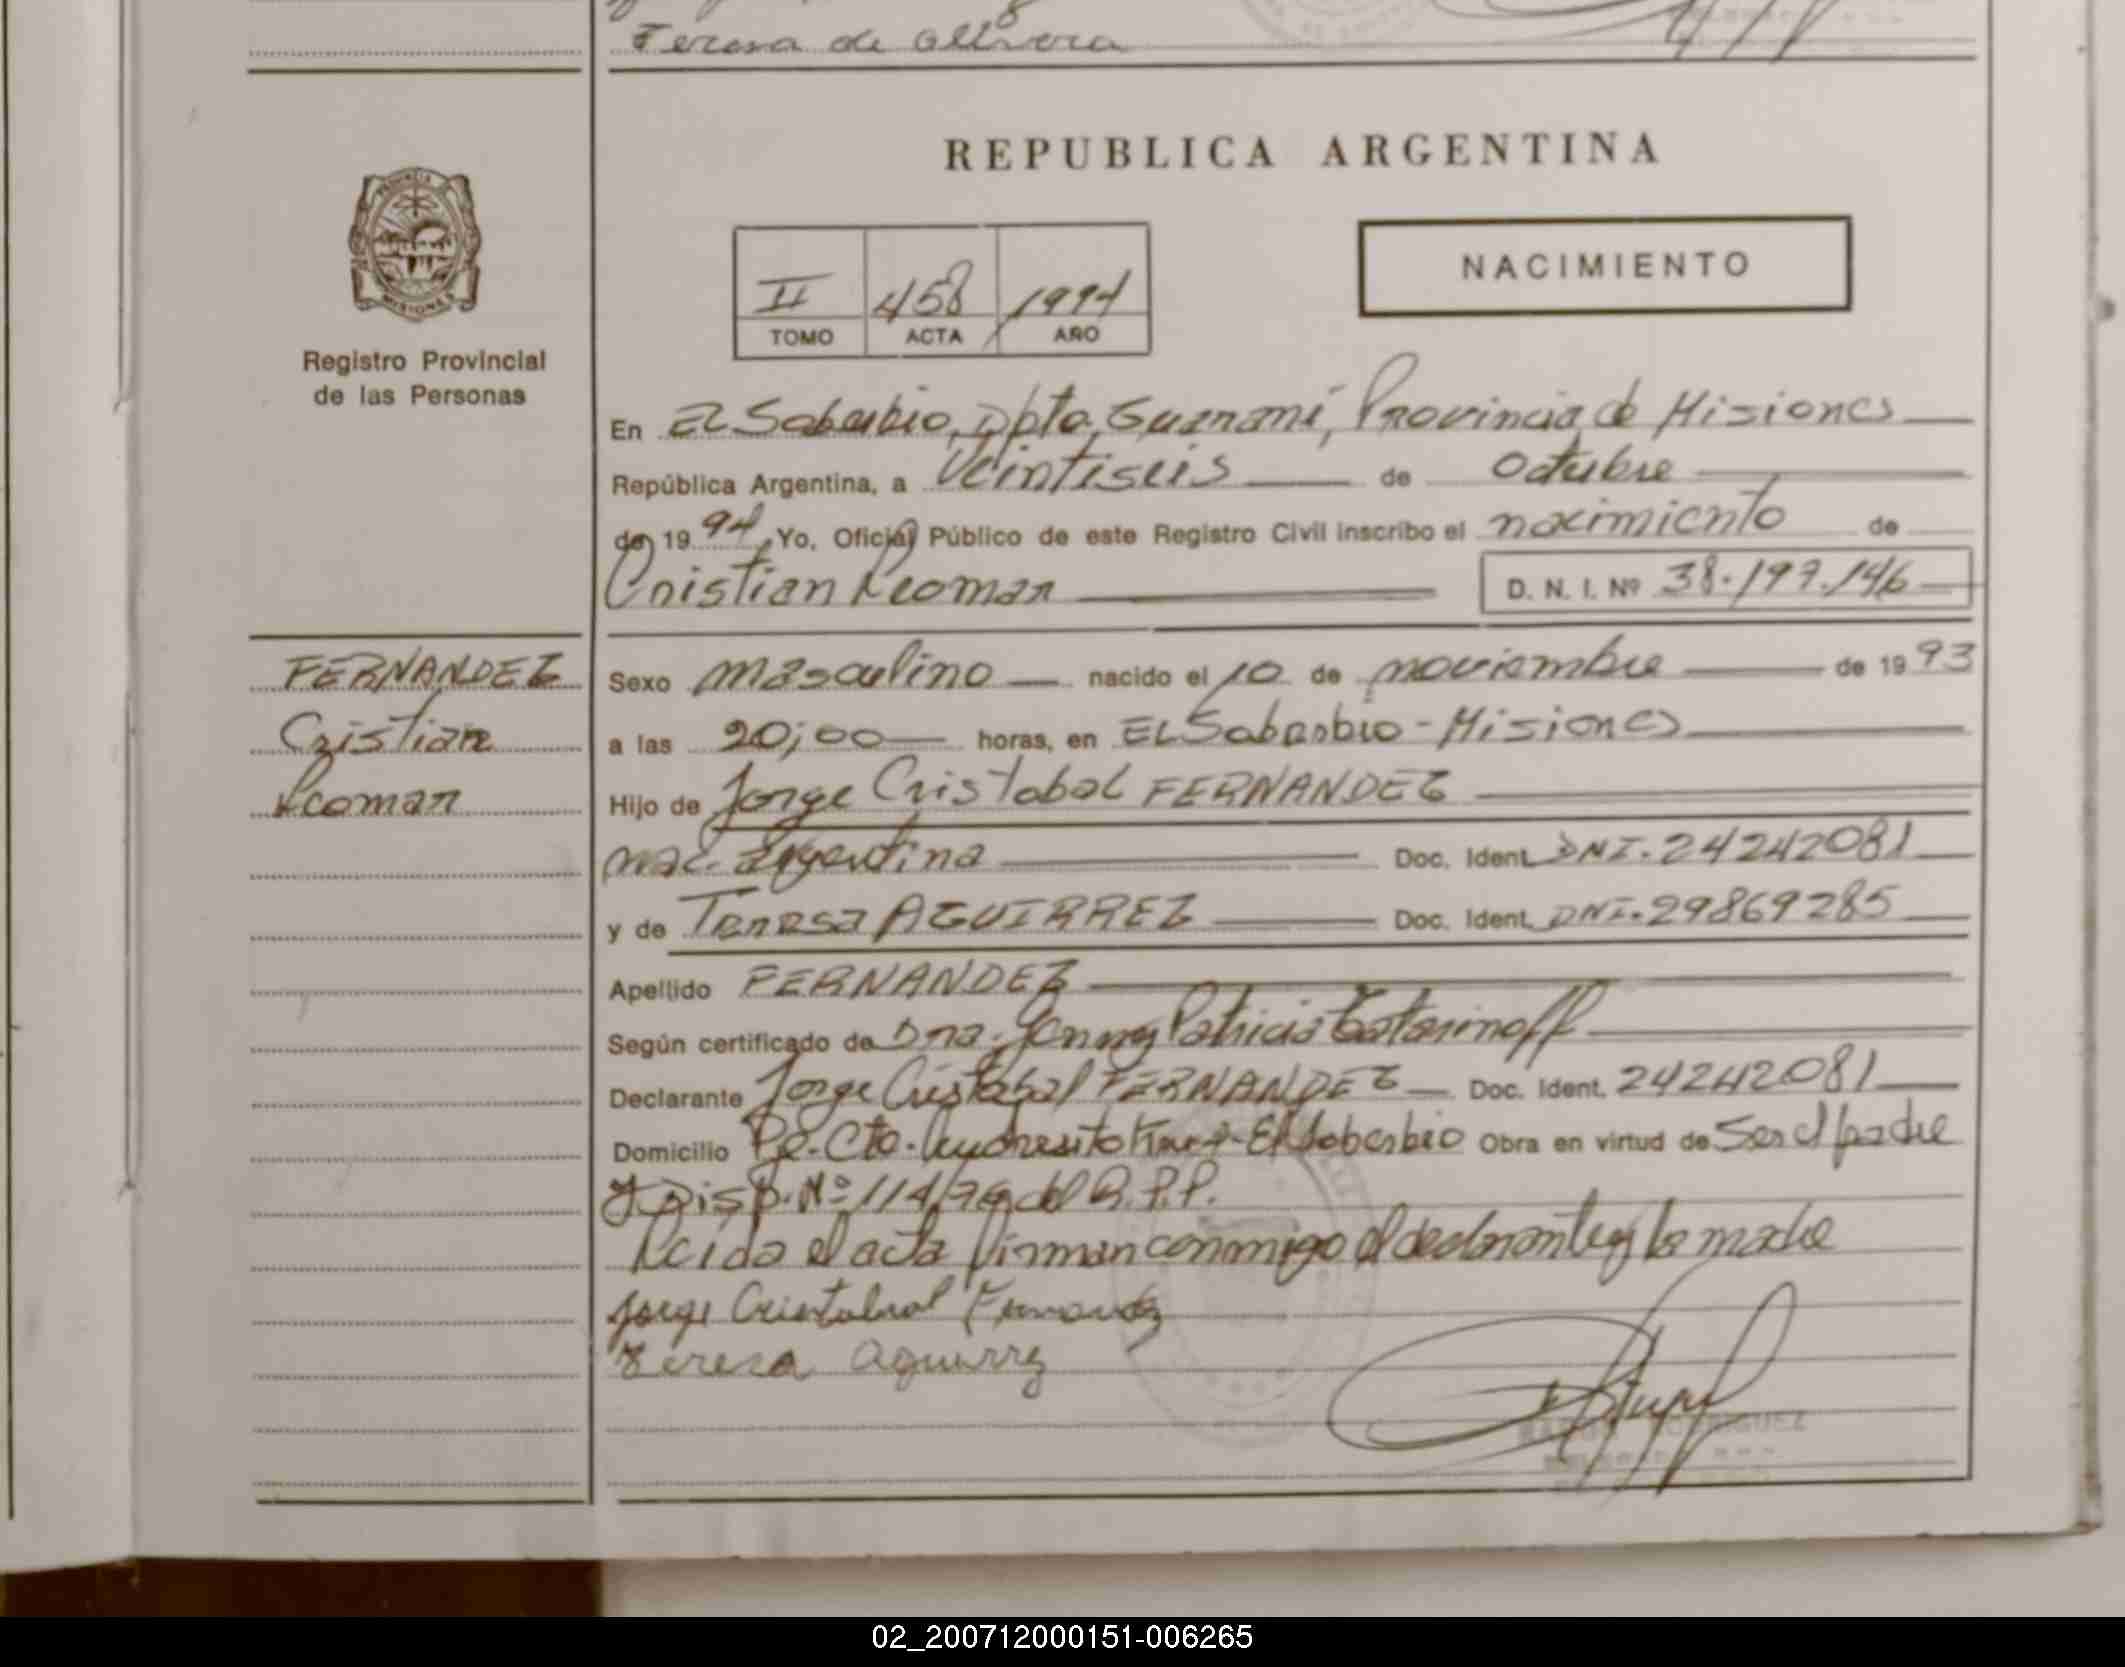 Teresa de Olivera
REPUBLICA ARGENTINA
PROVINCIA
MISIONES
Registro Provincial
de las Personas
II 458 1994
TOMO ACTA AÑO
NACIMIENTO
En El Soberbio, Dpto. Guaraní, Provincia de Misiones
República Argentina, a Veintiseis de Octubre
de 19 94, Yo, Oficial Público de este Registro Civil inscribo el nacimiento de
Cristian Leoman
D. N. I. Nº 38.197.146
FERNANDEZ
Cristian
Leoman
Sexo masculino nacido el 10 de noviembre de 19 93
a las 20;00 horas, en El Soberbio - Misiones
Hijo de Jorge Cristobal FERNANDEZ
nac. argentina Doc. Ident. DNI. 24242081
y de Teresa AGUIRREZ Doc. Ident. DNI. 29869285
Apellido FERNANDEZ
Según certificado de Dra. Jenny Patricia Tatarinoff
Declarante Jorge Cristobal FERNANDEZ Doc. Ident. 24242081
Domicilio Pje. Cto. Andresito - El Soberbio Obra en virtud de Ser el padre
y Disp. Nº 114/76 del R.P.P.
Leida el acta firman conmigo el declarante y la madre
Jorge Cristobal Fernandez
Teresa Aguirrez
02_200712000151-006265